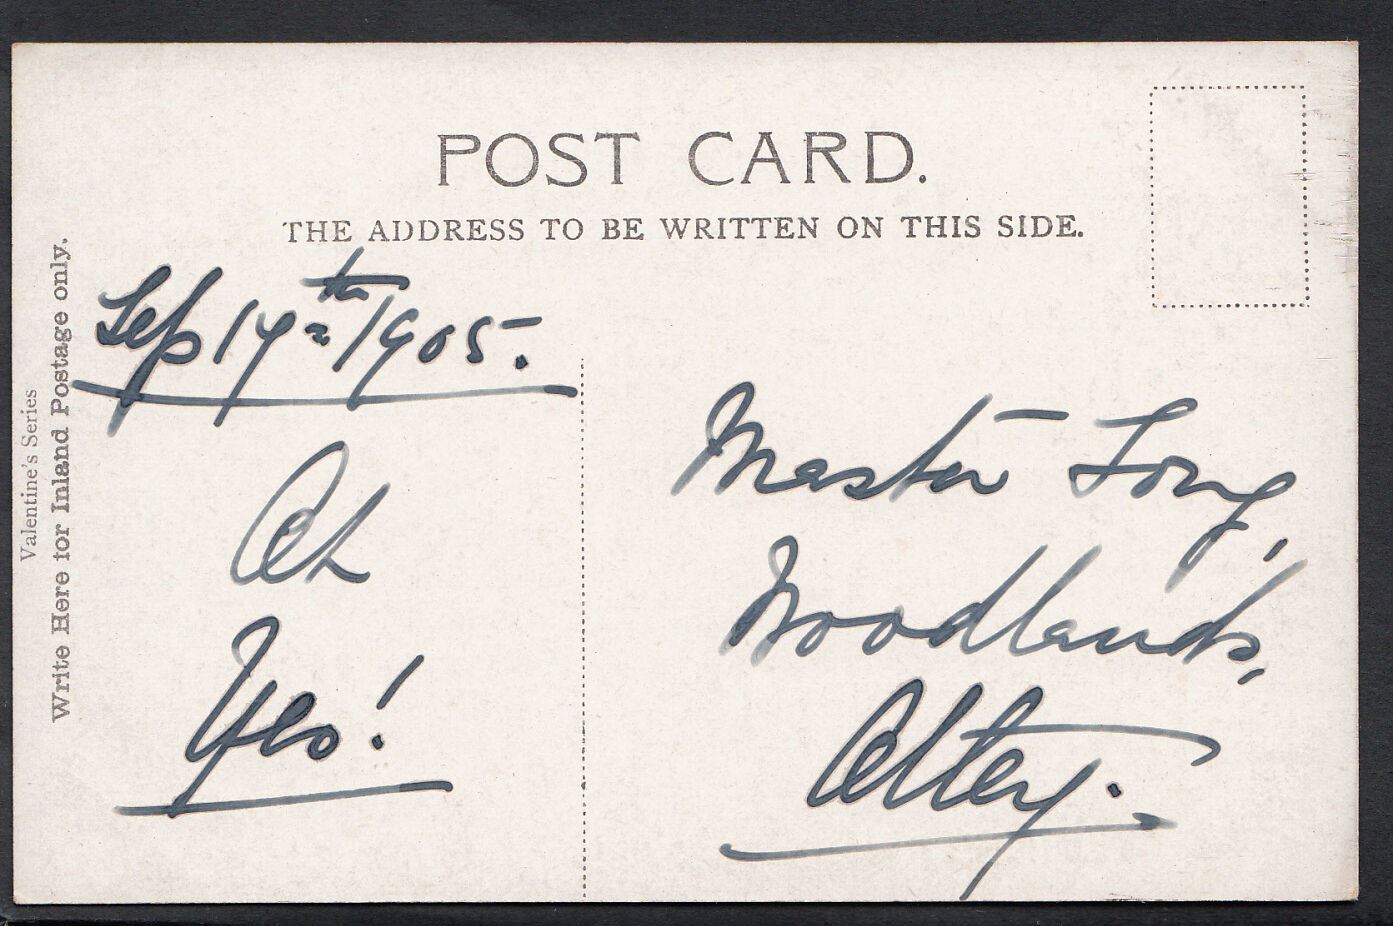 POST CARD.
THE ADDRESS TO BE WRITTEN ON THIS SIDE.
Valentine's Series
Write Here for Inland Postage only.
Sep 17th 1905.
Ah
Yes!
Master Long,
Woodlands,
Otley.